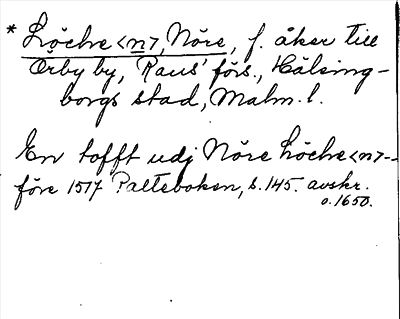 * Löche <n>, Nöre, f. åker till
Örby by, Raus' förs., Hälsing-
borgs stad, Malm. l.
En tofft udj Nöre Löche <n> -
före 1517 Palteboken, s. 145. avskr.
o. 1650.